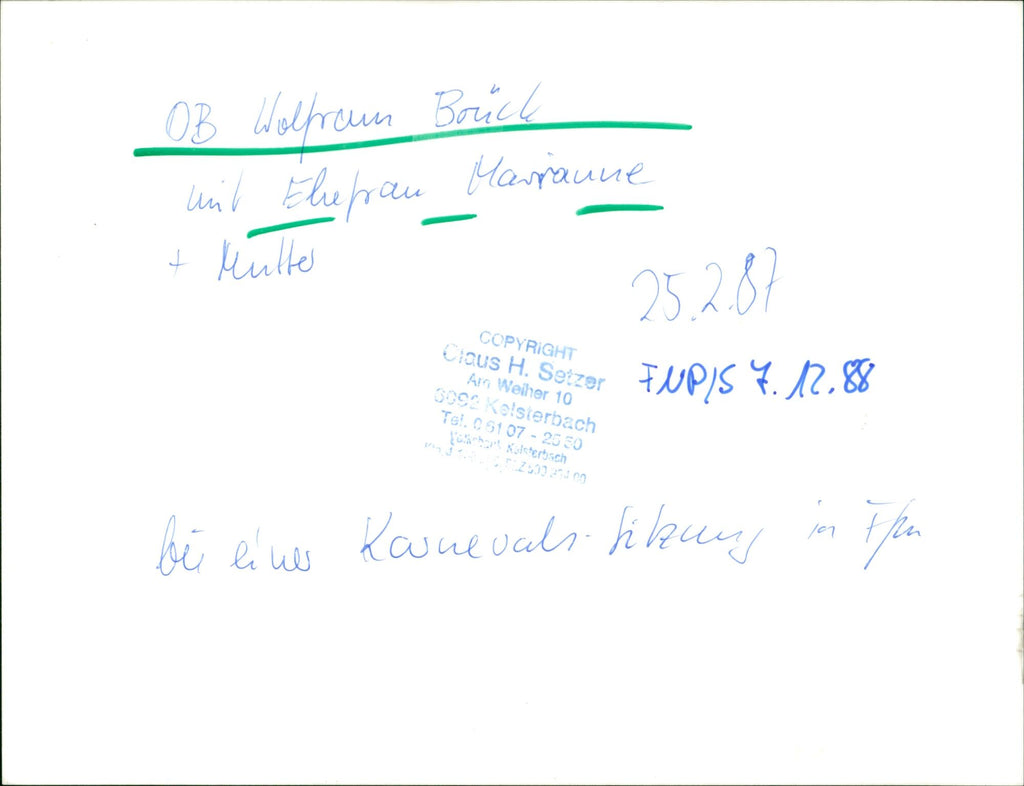 OB Wolfram Brück
mit Ehefrau Marianne
+ Mutter
25.2.87
COPYRIGHT
Claus H. Setzer
Am Weiher 10
6092 Kelsterbach
Tel. 0 61 07 - 25 50
Volksbank Kelsterbach
FNP/S 7.12.88
bei einer Karnevals-Sitzung in Ffm